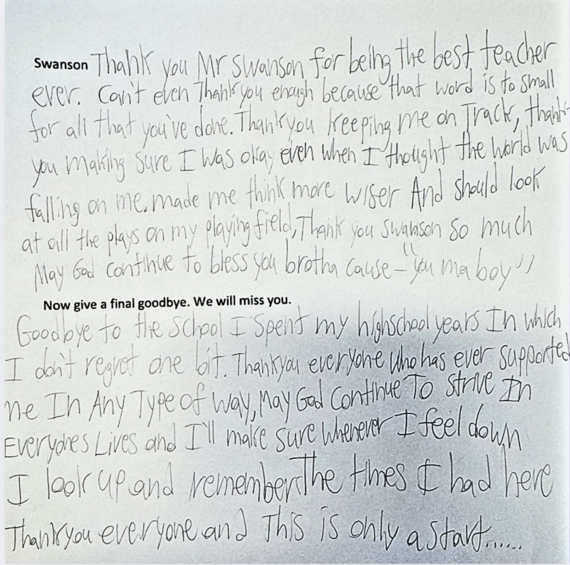 Swanson Thank you Mr Swanson for being the best teacher
ever. Can't even Thank you enough because that word is to small
for all that you've done. Thank you keeping me on Track, thank-
you making sure I was okay even when I thought the world was
falling on me. made me think more wiser And should look
at all the plays on my playing field, Thank you swanson so much
May God continue to bless you brotha cause - "you ma boy"
Now give a final goodbye. We will miss you.
Goodbye to the school I spent my highschool years In which
I don't regret one bit. Thankyou everyone who has ever supported
me In Any Type of Way, May God Continue To strive In
Everyones Lives and I'll make sure whenever I feel down
I look up and remember The times I had here
Thankyou everyone and This is only a start......